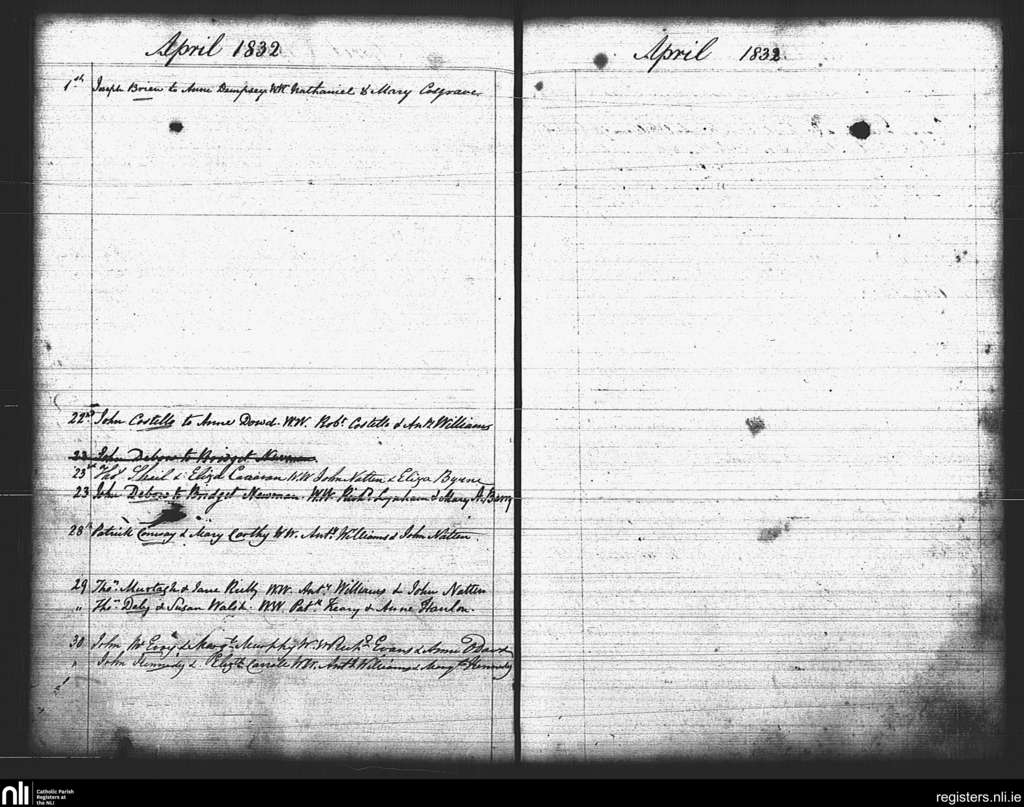 April 1832
1st Joseph Brien to Anne Dempsey WW Nathaniel & Mary Cosgrave
22nd John Costello to Anne Dowd. W.W. Robt Costello & Anty Williams
23 John Debow to Bridget Newman.
23rd Thos Sheil & Eliza WW John Natten & Eliza Byrne
23 John Debow to Bridget Newman. W.W. Richd Lynham & Mary A. Barry
28th Patrick Conway & Mary Carthy WW. Anty Williams & John Natten.
29 Thos Murtagh & Jane Reilly WW. Anty Williams & John Natten
" Thos Daly & Susan Walsh. WW. Patk Keary & Anne Hanlon.
30 John & Margt Murphy W.W Richd Evans & Anne
" John Kennedy & Elizth Carroll WW. Anty Williams & Margt Kennedy
April 1832
nli
Catholic Parish
Registers at
the NLI
registers.nli.ie